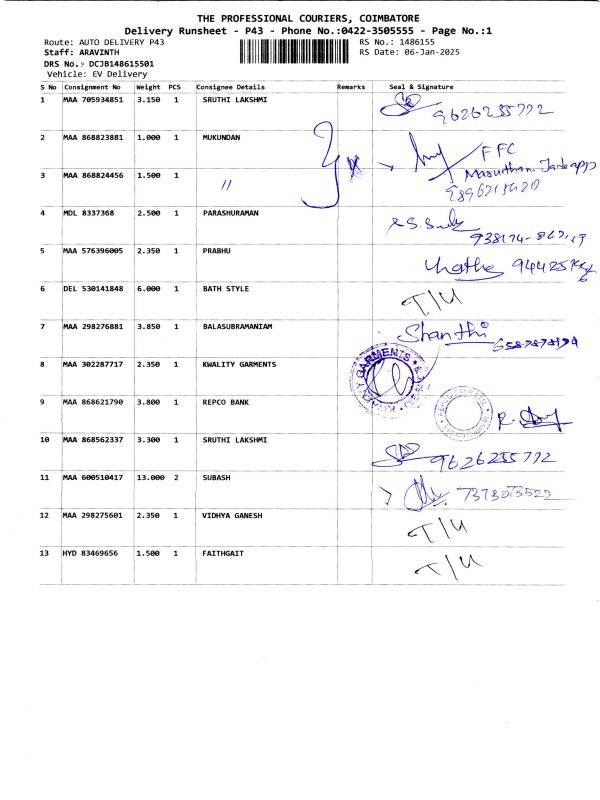 THE PROFESSIONAL COURIERS, COIMBATORE
Delivery Runsheet - P43 - Phone No.:0422-3505555 - Page No.:1
Route: AUTO DELIVERY P43 RS No.: 1486155
Staff: ARAVINTH RS Date: 06-Jan-2025
DRS No.: DCJB148615501
Vehicle: EV Delivery
S No Consignment No Weight PCS Consignee Details Remarks Seal & Signature
1 MAA 705934851 3.150 1 SRUTHI LAKSHMI 9626255792
2 MAA 868823881 1.000 1 MUKUNDAN FFC
3 MAA 868824456 1.500 1 //
4 MDL 8337368 2.500 1 PARASHURAMAN
5 MAA 576396005 2.350 1 PRABHU
6 DEL 530141848 6.000 1 BATH STYLE T/U
7 MAA 298276881 3.850 1 BALASUBRAMANIAM Shanthi
8 MAA 302287717 2.350 1 KWALITY GARMENTS
9 MAA 868621790 3.800 1 REPCO BANK
10 MAA 868562337 3.300 1 SRUTHI LAKSHMI 9626255792
11 MAA 600510417 13.000 2 SUBASH 7373073522
12 MAA 298275601 2.350 1 VIDHYA GANESH T/U
13 HYD 83469656 1.500 1 FAITHGAIT T/U